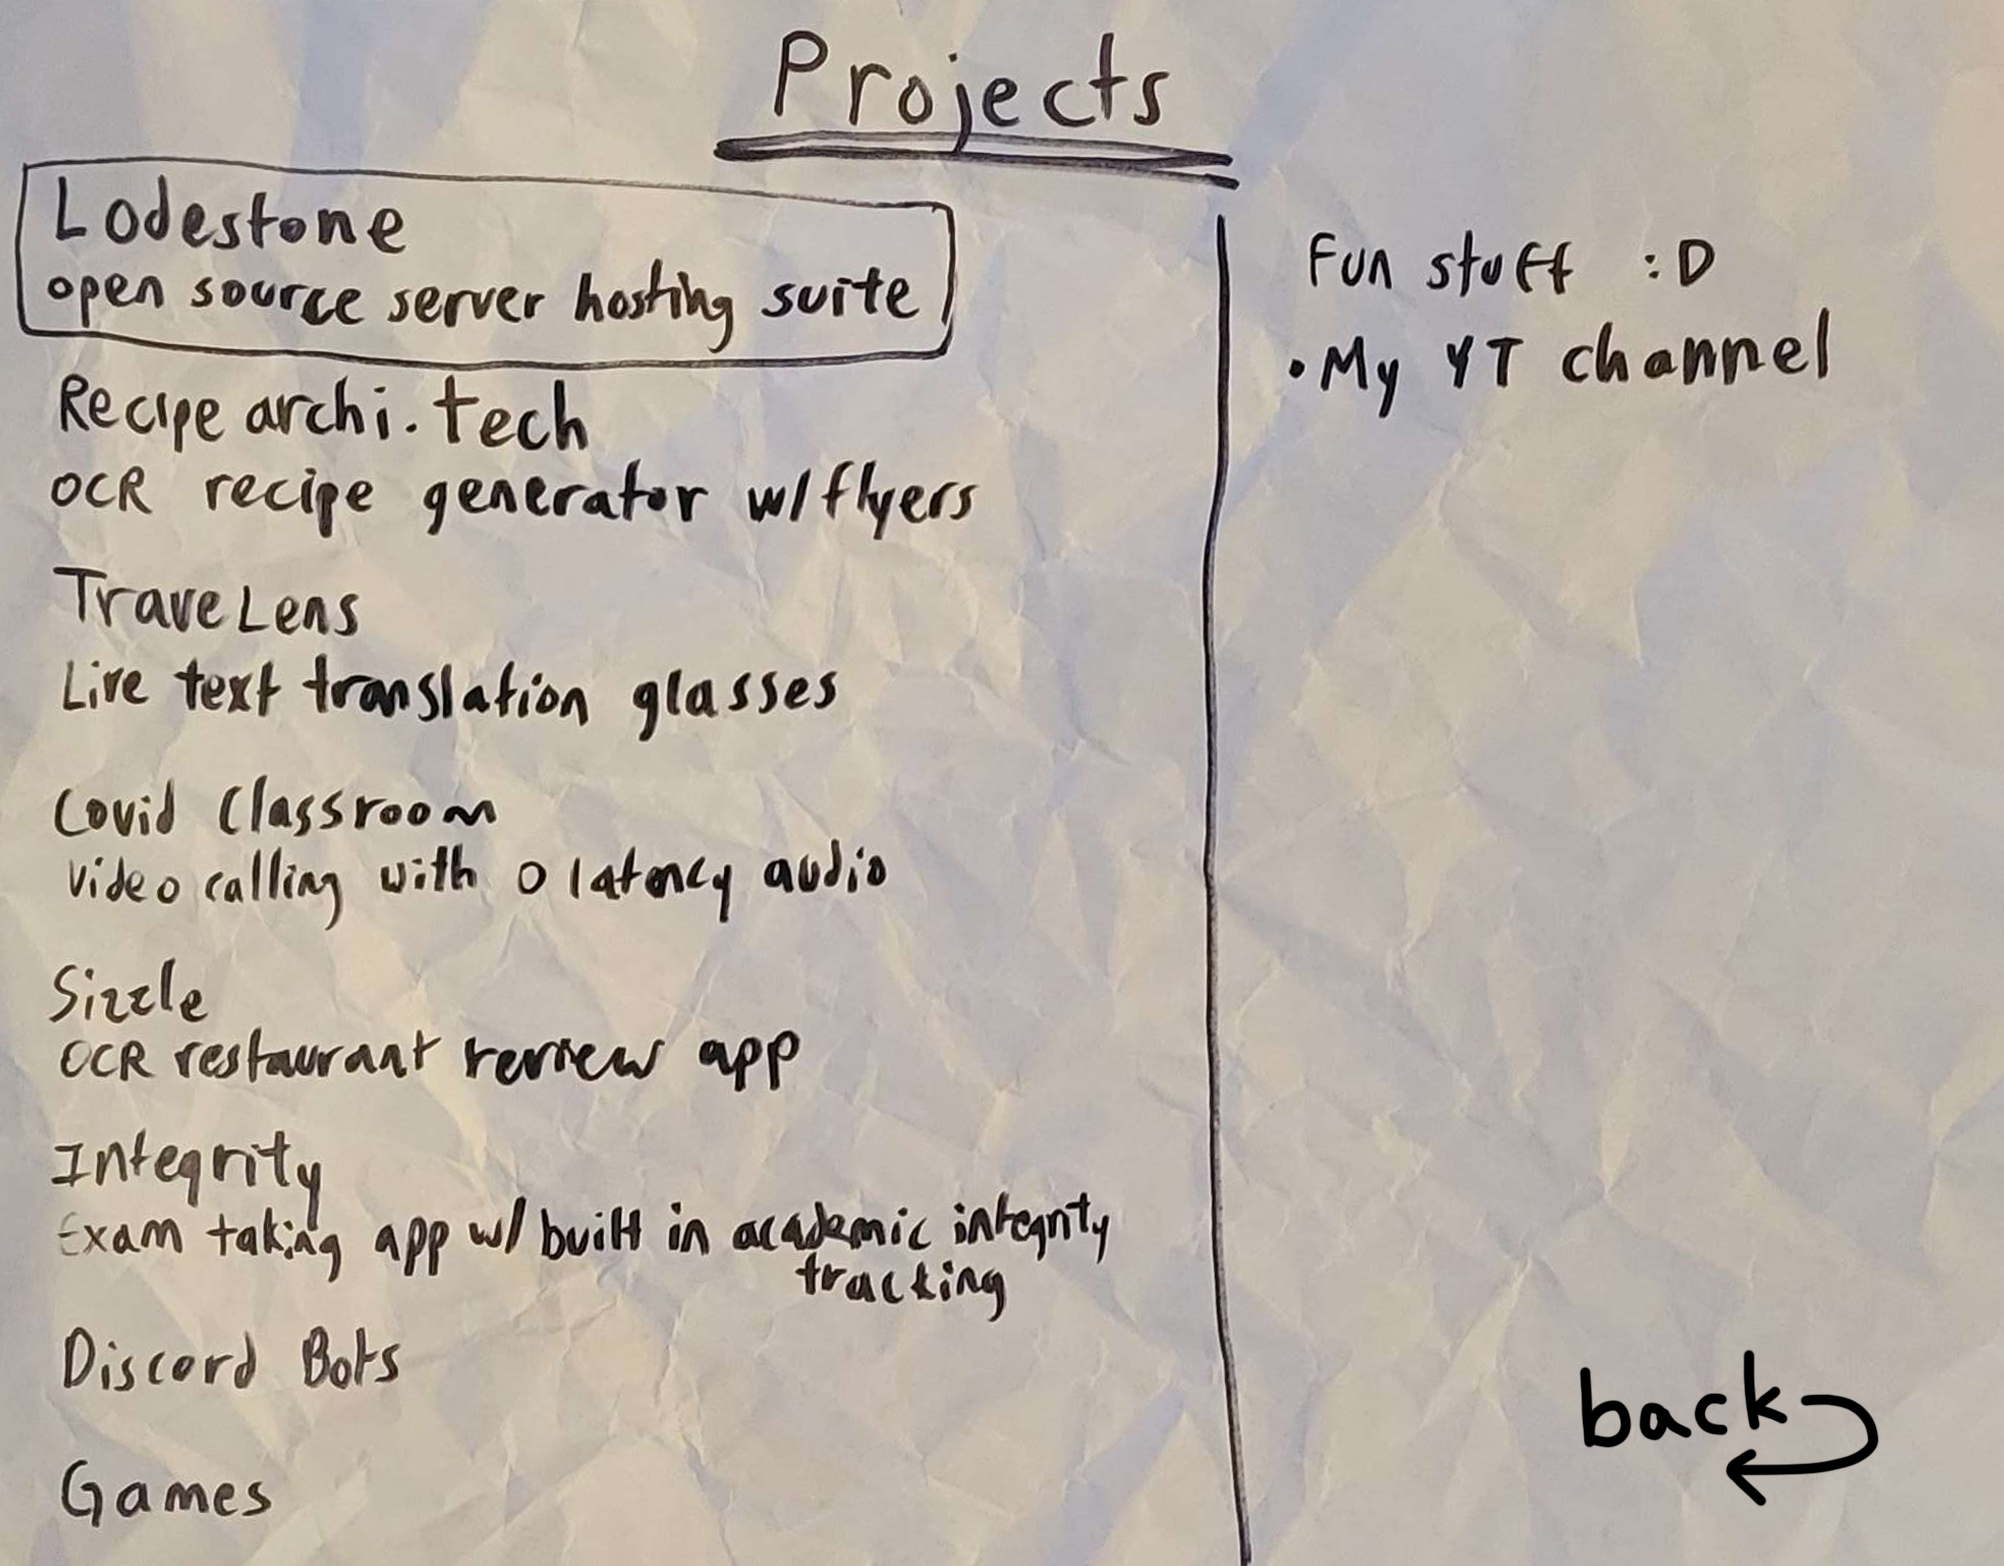 Projects
Lodestone
open source server hosting suite
Recipe archi.tech
OCR recipe generator w/flyers
TraveLens
Live text translation glasses
Covid Classroom
Video calling with 0 latency audio
Sizzle
OCR restaurant review app
Integrity
Exam taking app w/ built in academic integrity
tracking
Discord Bots
Games
Fun stuff :D
• My YT channel
back